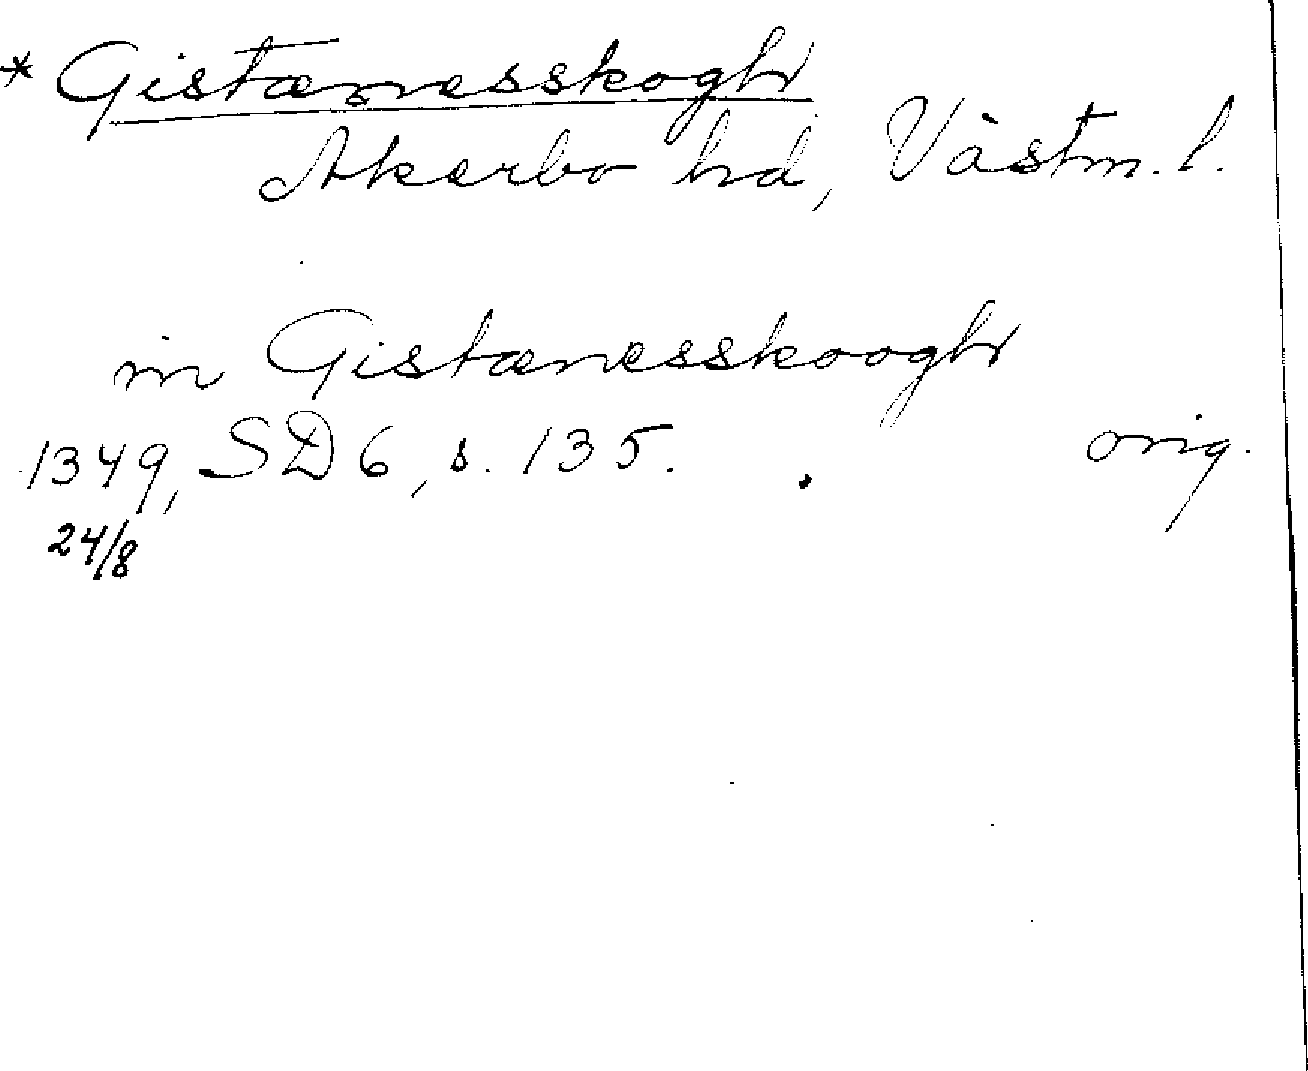 * Gistænesskogh
Åkerbo hd, Västm. l.
in Gistænesskoogh
1349, SD 6, s. 135. orig.
24/8